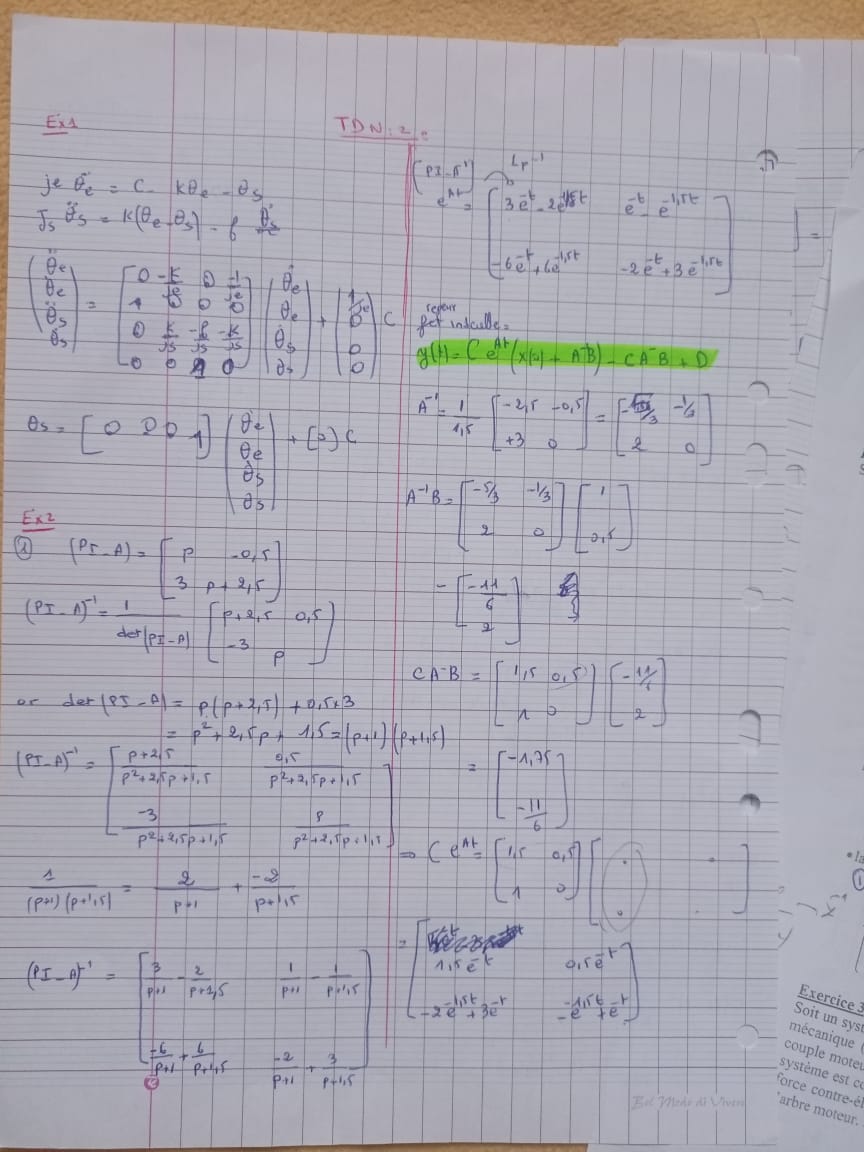 TDN: 2 =
Ex1
je θ̈e = C - Kθe - θs
Js θ̈s = K(θe - θs) - f θ̇s
(θ̈e θ̇e θ̈s θ̇s) = [0 -K/Je 0 -1/Je ; 1 0 0 0 ; 0 K/Js -f/Js -K/Js ; 0 0 1 0] (θ̇e θe θ̇s θs) + (1/Je 0 0 0) C
θs = [0 0 0 1] (θ̇e θe θ̇s θs) + [0] C
Ex2
① (PI - A) = [p -0,5 ; 3 p+2,5]
(PI - A)⁻¹ = 1/det(PI-A) [p+2,5 0,5 ; -3 p]
or det(PI-A) = p(p+2,5) + 0,5×3
= p² + 2,5p + 1,5 = (p+1)(p+1,5)
(PI-A)⁻¹ = [p+2,5/p²+2,5p+1,5 0,5/p²+2,5p+1,5 ; -3/p²+2,5p+1,5 p/p²+2,5p+1,5]
1/(p+1)(p+1,5) = 2/p+1 + -2/p+1,5
(PI-A)⁻¹ = [3/p+1 - 2/p+2,5 1/p+1 - 1/p+1,5 ; -6/p+1 + 6/p+1,5 -2/p+1 + 3/p+1,5]
[PI-A⁻¹] Lp⁻¹
e^At = [3e^-t - 2e^-1,5t e^-t - e^-1,5t ; -6e^-t + 6e^-1,5t -2e^-t + 3e^-1,5t]
fct indicielle =
y(t) = C e^At (x(0) + A⁻B) - CA⁻B + D
A⁻¹ = 1/1,5 [-2,5 -0,5 ; +3 0] = [-5/3 -1/3 ; 2 0]
A⁻¹B = [-5/3 -1/3 ; 2 0] [1 ; 0,5]
- [-11/6 ; 2]
CA⁻B = [1,5 0,5 ; 1 0] [-11/6 ; 2]
= [-1,75 ; -11/6]
⇒ C e^At = [1,5 0,5 ; 1 0] [
= [1,5e^-t 0,5e^-t ; -2e^-1,5t + 3e^-t -e^-1,5t + e^-t]
Bel Modo di Vivere
Exercice 3
Soit un syst
mécanique (
couple moteu
système est co
force contre-él
'arbre moteur.